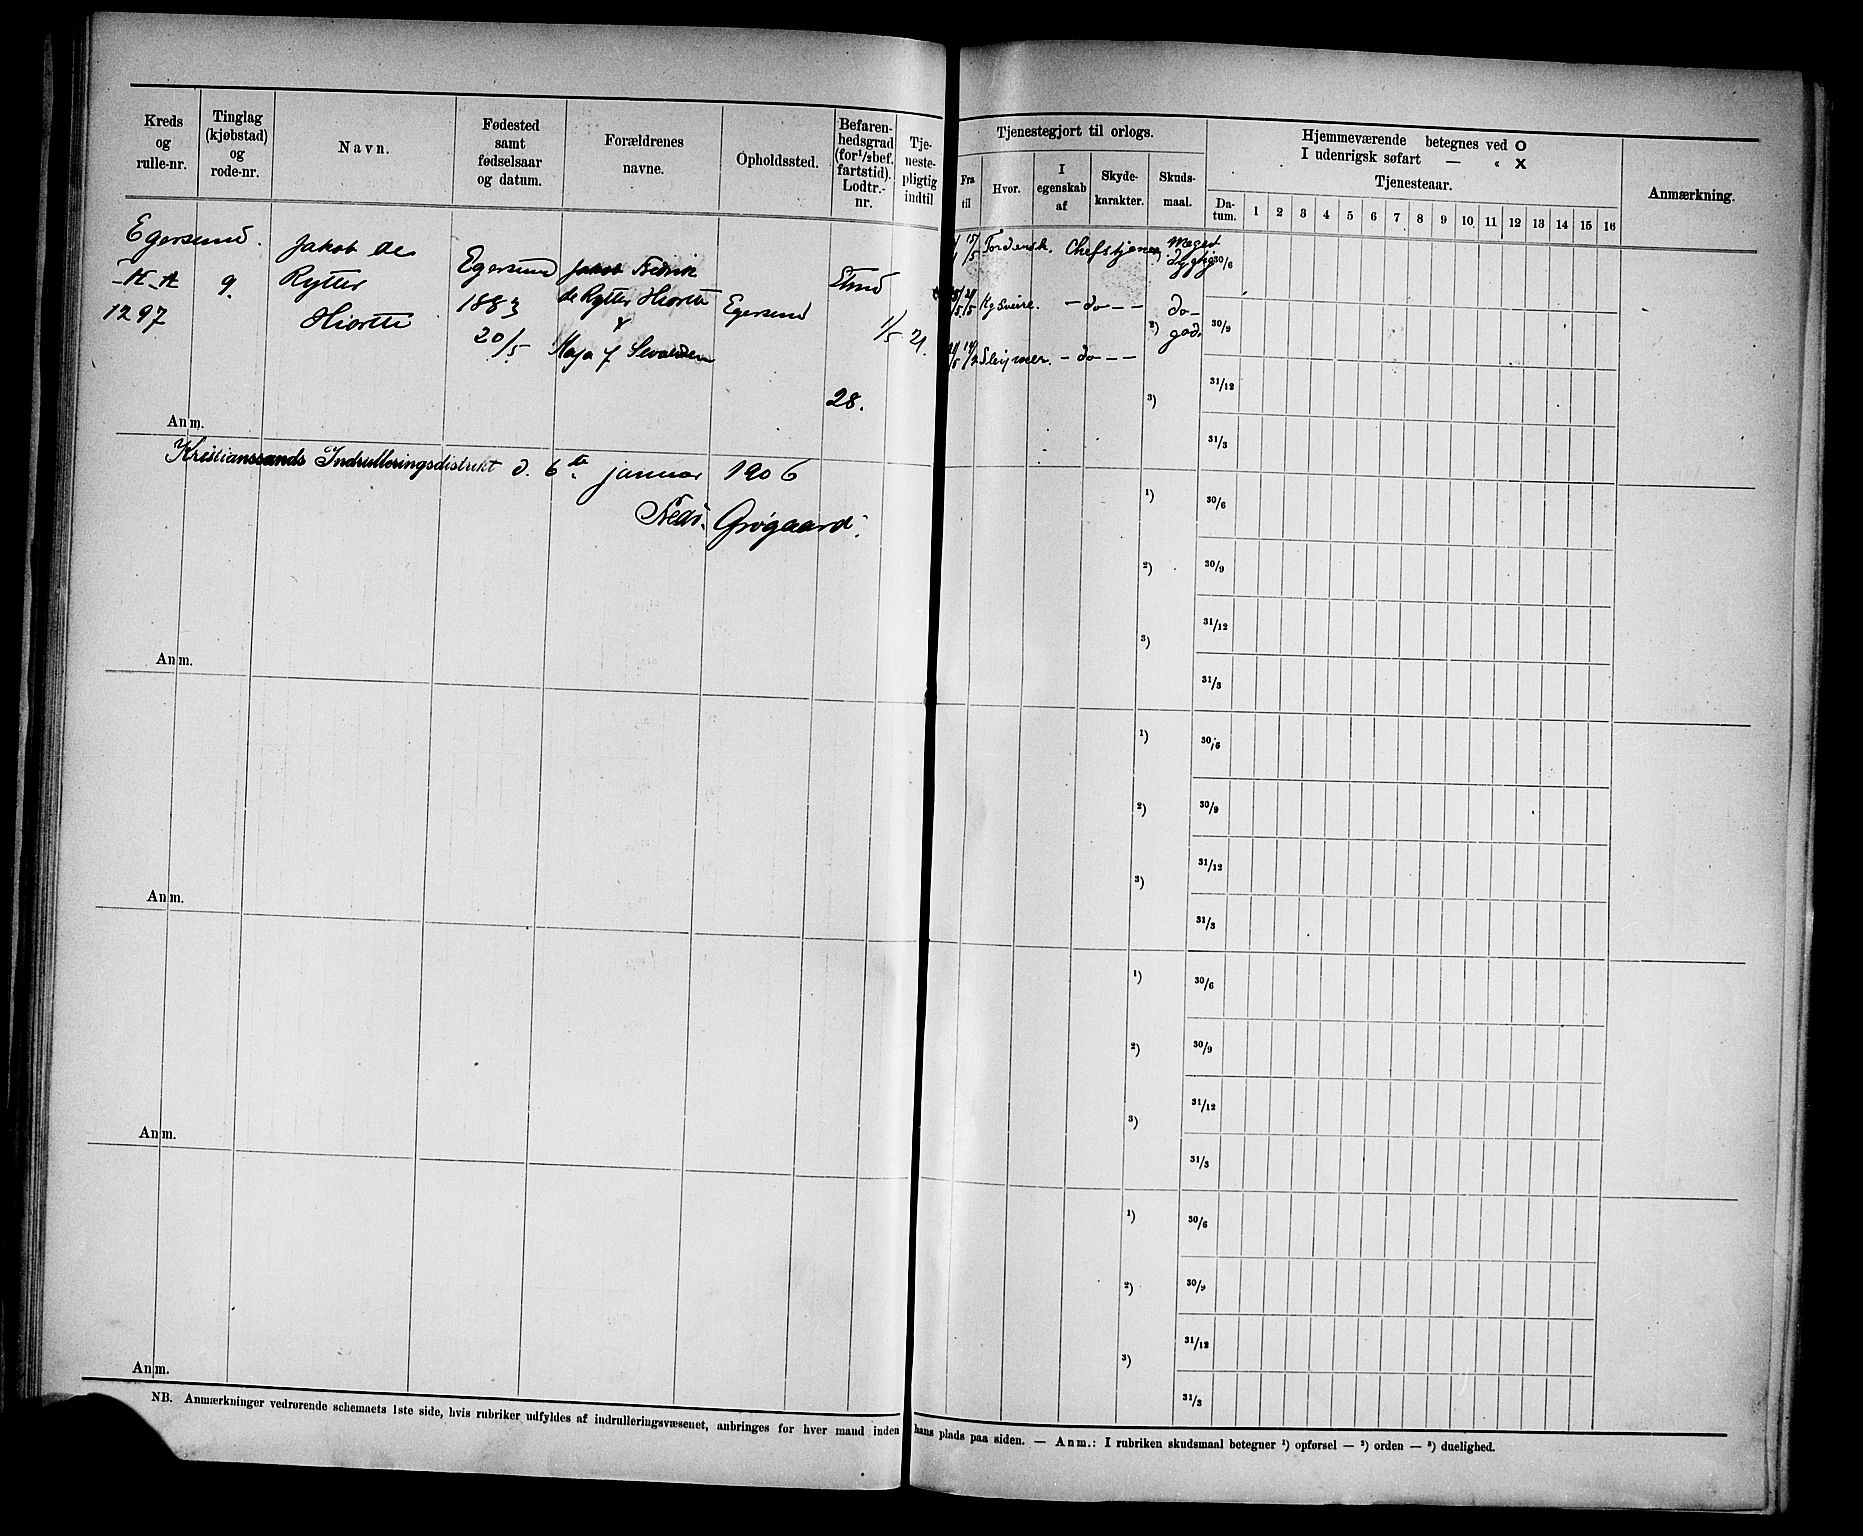 Kreds
og
rulle-nr.
Tinglag
(kjøbstad)
og
rode-nr.
Navn.
Fødested
samt
fødselsaar
og datum.
Forældrenes
navne.
Opholdssted.
Befaren-
hedsgrad
(for 1/2 bef.
fartstid).
Lodtr.-
nr.
Tje-
neste-
pligtig
indtil
Tjenestegjort til orlogs.
Fra
til
Hvor.
I
egenskab
af
Skyde-
karakter.
Skuds-
maal.
Hjemmeværende betegnes ved O
I udenrigsk søfart — « X
Tjenesteaar.
Da-
tum.
1 2 3 4 5 6 7 8 9 10 11 12 13 14 15 16
Anmærkning.
Egersund.
K-A
1297
9
Jakob de
Rytter
Hiorth
Egersund
1883
20/5
Jakob Fredrik
de Rytter Hiorth
&
Maja f
Egersund
28.
1/5 21.
Tordensk. Chefstjener Meget
dygtig
30/6
— do — — do —
2) god.
30/9
Sleipner. — do — —
3)
31/12
31/3
Anm.
Kristianssands Indrulleringsdistrikt d. 6te januar 1906
Fredr. Grøgaard.
1)
30/6
2)
30/9
3)
31/12
31/3
Anm.
1)
30/6
2)
30/9
3)
31/12
31/3
Anm.
1)
30/6
2)
30/9
3)
31/12
31/3
Anm.
1)
30/6
2)
30/9
3)
31/12
31/3
Anm.
NB. Anmærkninger vedrørende schemaets 1ste side, hvis rubriker udfyldes af indrulleringsvæsenet, anbringes for hver mand inden hans plads paa siden. — Anm.: I rubriken skudsmaal betegner 1) opførsel — 2) orden — 3) duelighed.